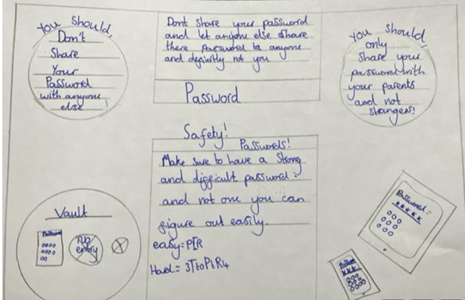 You should,
Don't
Share
Your
Password
with anyone
else
Dont share your password
and let anyone else share
there password to anyone
and definitly not you
Password
you should,
only
share your
password with
your parents
and not
strangers!
Safety!
Passwords!
Make sure to have a strong
and difficult password
and not one you can
figure out easily.
easy=
Hard=
Vault
No
entry
Password=